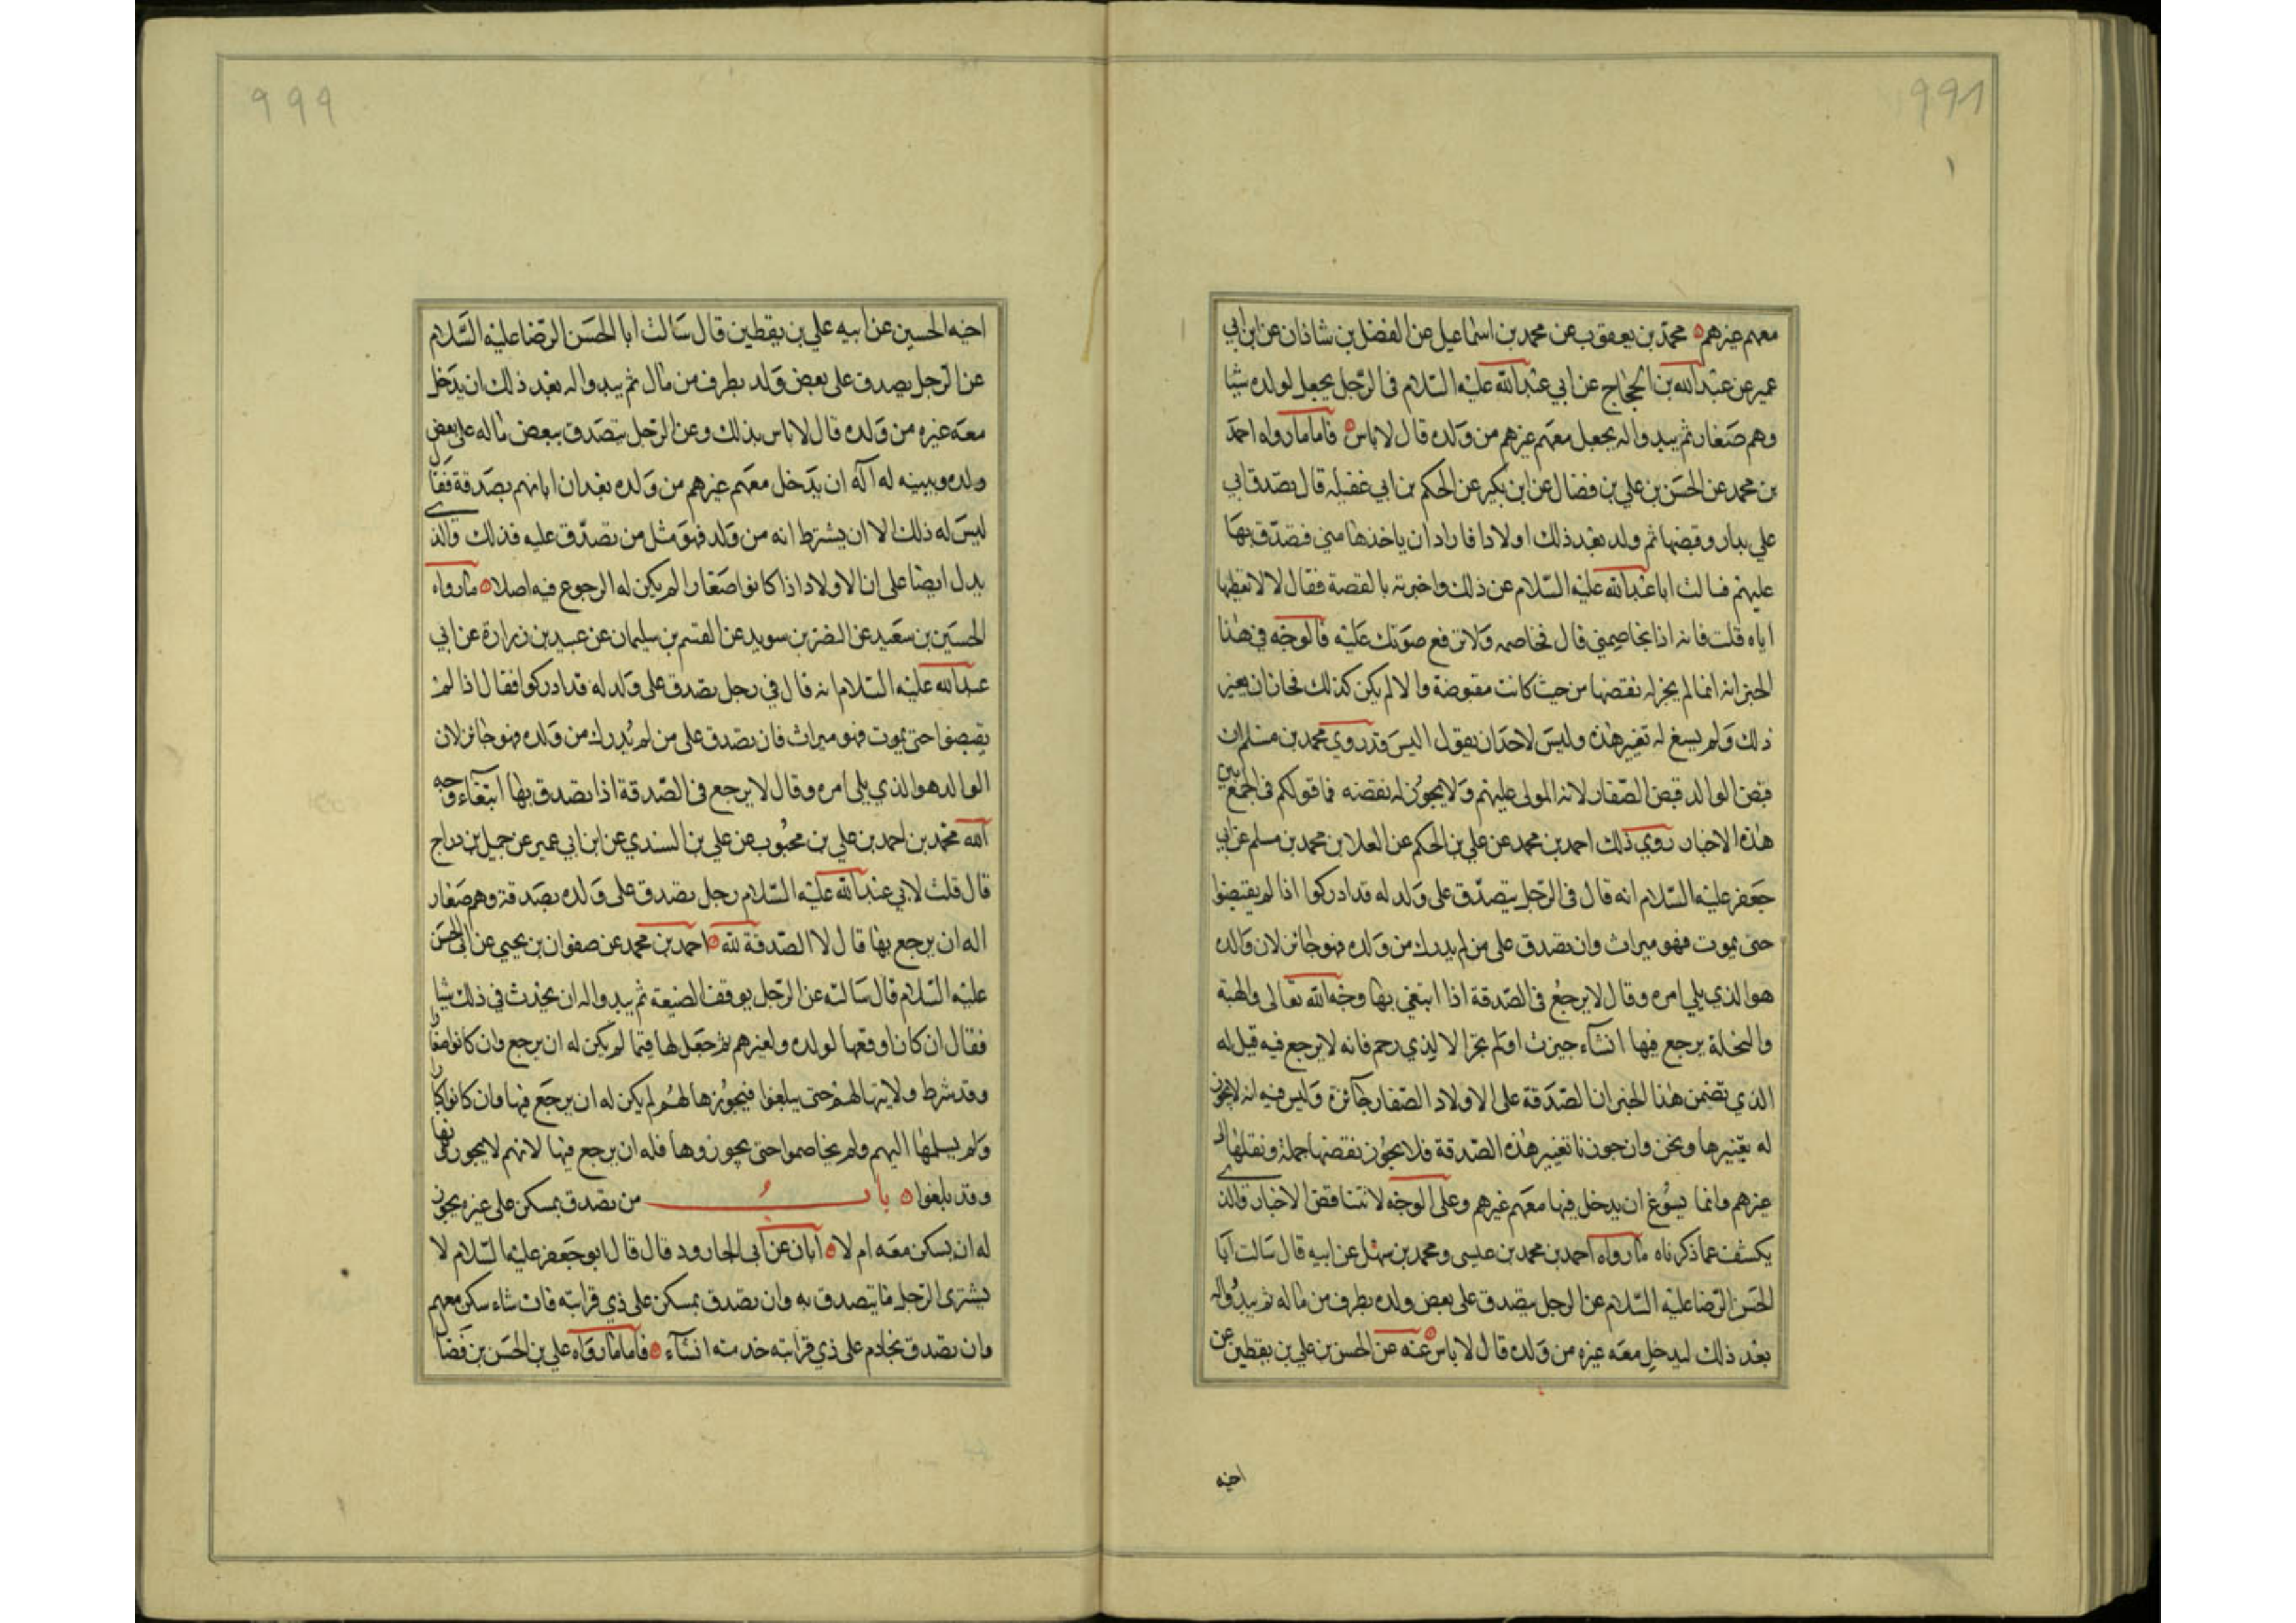 ۹۹۸
معهم غيرهم محمد بن يعقوب عن محمد بن اسماعيل عن الفضل بن شاذان عن ابن ابي
عمير عن عبد الله بن الحجاج عن ابي عبد الله عليه السلام فى الرجل يجعل لولده شيئا
وهم صغار ثم يبدو له يجعل معهم غيرهم من ولده قال لا باس فاما ما رواه احمد
بن محمد عن الحسن بن علي بن فضال عن ابن بكير عن الحكم بن ابي عقيله قال تصدق ابي
علي بدار وقبضها ثم ولد بعد ذلك اولادا فاراد ان ياخذها مني فتصدق بها
عليهم فسالت ابا عبد الله عليه السلام عن ذلك واخبرته بالقصة فقال لا لا تعطها
اياه قلت فانه اذا يخاصمني قال فخاصمه ولا ترفع صوتك عليه فالوجه في هذا
الخبر انه انما لم يجز له نقضها من حيث كانت مقبوضة والا لم يكن كذلك فجاز ان يغير
ذلك ولم يسغ له تغيير هذه وليس لاحد ان يقول اليس قد روي محمد بن مسلم ان
قبض الوالد قبض الصغار لانه المولى عليهم ولا يجوز له نقضه فما قولكم فى الجمع بين
هذه الاخبار روي ذلك احمد بن محمد عن علي بن الحكم عن العلا بن محمد بن مسلم عن ابي
جعفر عليه السلام انه قال فى الرجل يتصدق على ولد له قد ادركوا اذا لم يقبضوا
حتى يموت فهو ميراث وان تصدق على من لم يدرك من ولده فهو جائز لان والده
هو الذي يلي امره وقال لا يرجع فى الصدقة اذا ابتغي بها وجه الله تعالى والهبة
والنحلة يرجع فيها انشاء حيزت او لم تحز الا لذي رحم فانه لا يرجع فيه قيل له
الذي تضمن هذا الخبر ان الصدقة على الاولاد الصغار جائزة وليس فيه انه لا يجوز
له تغييرها ونحن وان جوزنا تغيير هذه الصدقة فلا يجوز نقضها جملة ونقلها الى
غيرهم وانما يسوغ ان يدخل فيها معهم غيرهم وعلى الوجه لا تتناقض الاخبار فالذي
يكشف عما ذكرناه ما رواه احمد بن محمد بن عيسى ومحمد بن سهل عن ابيه قال سالت ابا
الحسن الرضا عليه السلام عن الرجل يتصدق على بعض ولده بطرف من ماله ثم يبدو له
بعد ذلك ليدخل معه غيره من ولده قال لا باس عنه عن الحسن بن علي بن يقطين عن
اخيه
۹۹۹
اخيه الحسين عن ابيه علي بن يقطين قال سالت ابا الحسن الرضا عليه السلام
عن الرجل يصدق على بعض ولد بطرف من مال ثم يبدو له بعد ذلك ان يدخل
معه غيره من ولده قال لا باس بذلك وعن الرجل يتصدق ببعض ماله على بعض
ولده ويبينه له اله ان يدخل معهم غيرهم من ولده بعد ان ابانهم بصدقة فقا
ليس له ذلك الا ان يشترط انه من ولد فهو مثل من تصدق عليه فذلك والذي
يدل ايضا على ان الاولاد اذا كانوا صغارا لم يكن له الرجوع فيه اصلا ما رواه
الحسين بن سعيد عن النضر بن سويد عن القسم بن سليمان عن عبيد بن زرارة عن ابي
عبد الله عليه السلام انه قال في رجل تصدق على ولد له قد ادركوا فقال اذا لم
يقبضوا حتى يموت فهو ميراث فان تصدق على من لم يدرك من ولده فهو جائز لان
الوالد هو الذي يلى امره وقال لا يرجع فى الصدقة اذا تصدق بها ابتغاء وجه
الله محمد بن احمد بن علي بن محبوب عن علي بن السندي عن ابن ابي عمير عن جميل بن دراج
قال قلت لابي عبد الله عليه السلام رجل تصدق على ولده بصدقة وهم صغار
اله ان يرجع بها قال لا الصدقة لله احمد بن محمد عن صفوان بن يحيي عن ابى الحسن
عليه السلام قال سالته عن الرجل يوقف الضيعة ثم يبدو له ان يحدث في ذلك شيا
فقال ان كان اوقفها لولده ولغيرهم ثم جعل لها قيما لم يكن له ان يرجع وان كانوا صغارا
وقد شرط ولايتها لهم حتى يبلغوا فيحوزها لهم لم يكن له ان يرجع فيها وان كانوا كبارا
ولم يسلمها اليهم ولم يخاصموا حتى يحوزوها فله ان يرجع فيها لانهم لا يحوزونها
وقد بلغوا باب من تصدق بمسكن على غيره يجوز
له ان يسكن معه ام لا ابان عن ابى الجارود قال قال ابو جعفر عليهما السلام لا
يشترى الرجل ما يتصدق به وان تصدق بمسكن على ذي قرابته فان شاء سكن معهم
وان تصدق بخادم على ذي قرابته خدمته انشاء فاما ما رواه علي بن الحسن بن فضا